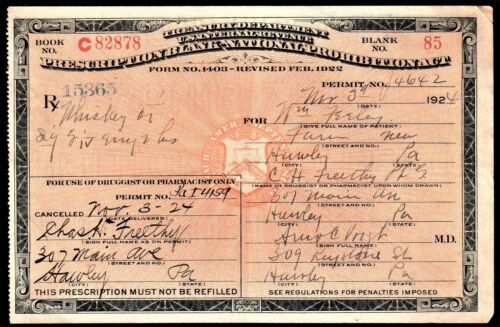 TREASURY DEPARTMENT
U.S. INTERNAL REVENUE
PRESCRIPTION BLANK-NATIONAL PROHIBITION ACT
BOOK NO. C82878
BLANK NO. 85
FORM NO. 1403 - REVISED FEB. 1922
PERMIT NO. 4642
15365
Rx
Whiskey
Nov 3 1924
(DATE)
FOR Wm
(GIVE FULL NAME OF PATIENT)
Farm
(STREET AND NO.)
Hawley Pa
(CITY) (STATE)
C. H. Freethy
(NAME OF DRUGGIST OR PHARMACIST UPON WHOM DRAWN)
307 Main Av
(STREET AND NO.)
Hawley Pa
(CITY) (STATE)
M.D.
(SIGN FULL NAME)
309 Keystone St
(STREET AND NO.)
Hawley Pa
(CITY) (STATE)
FOR USE OF DRUGGIST OR PHARMACIST ONLY
PERMIT NO.
CANCELLED Nov 3-24
(DATE DELIVERED)
Chas H. Freethy
(SIGN FULL NAME AS ON PERMIT)
307 Main Ave
(STREET AND NO.)
Hawley Pa
(CITY) (STATE)
THIS PRESCRIPTION MUST NOT BE REFILLED
SEE REGULATIONS FOR PENALTIES IMPOSED